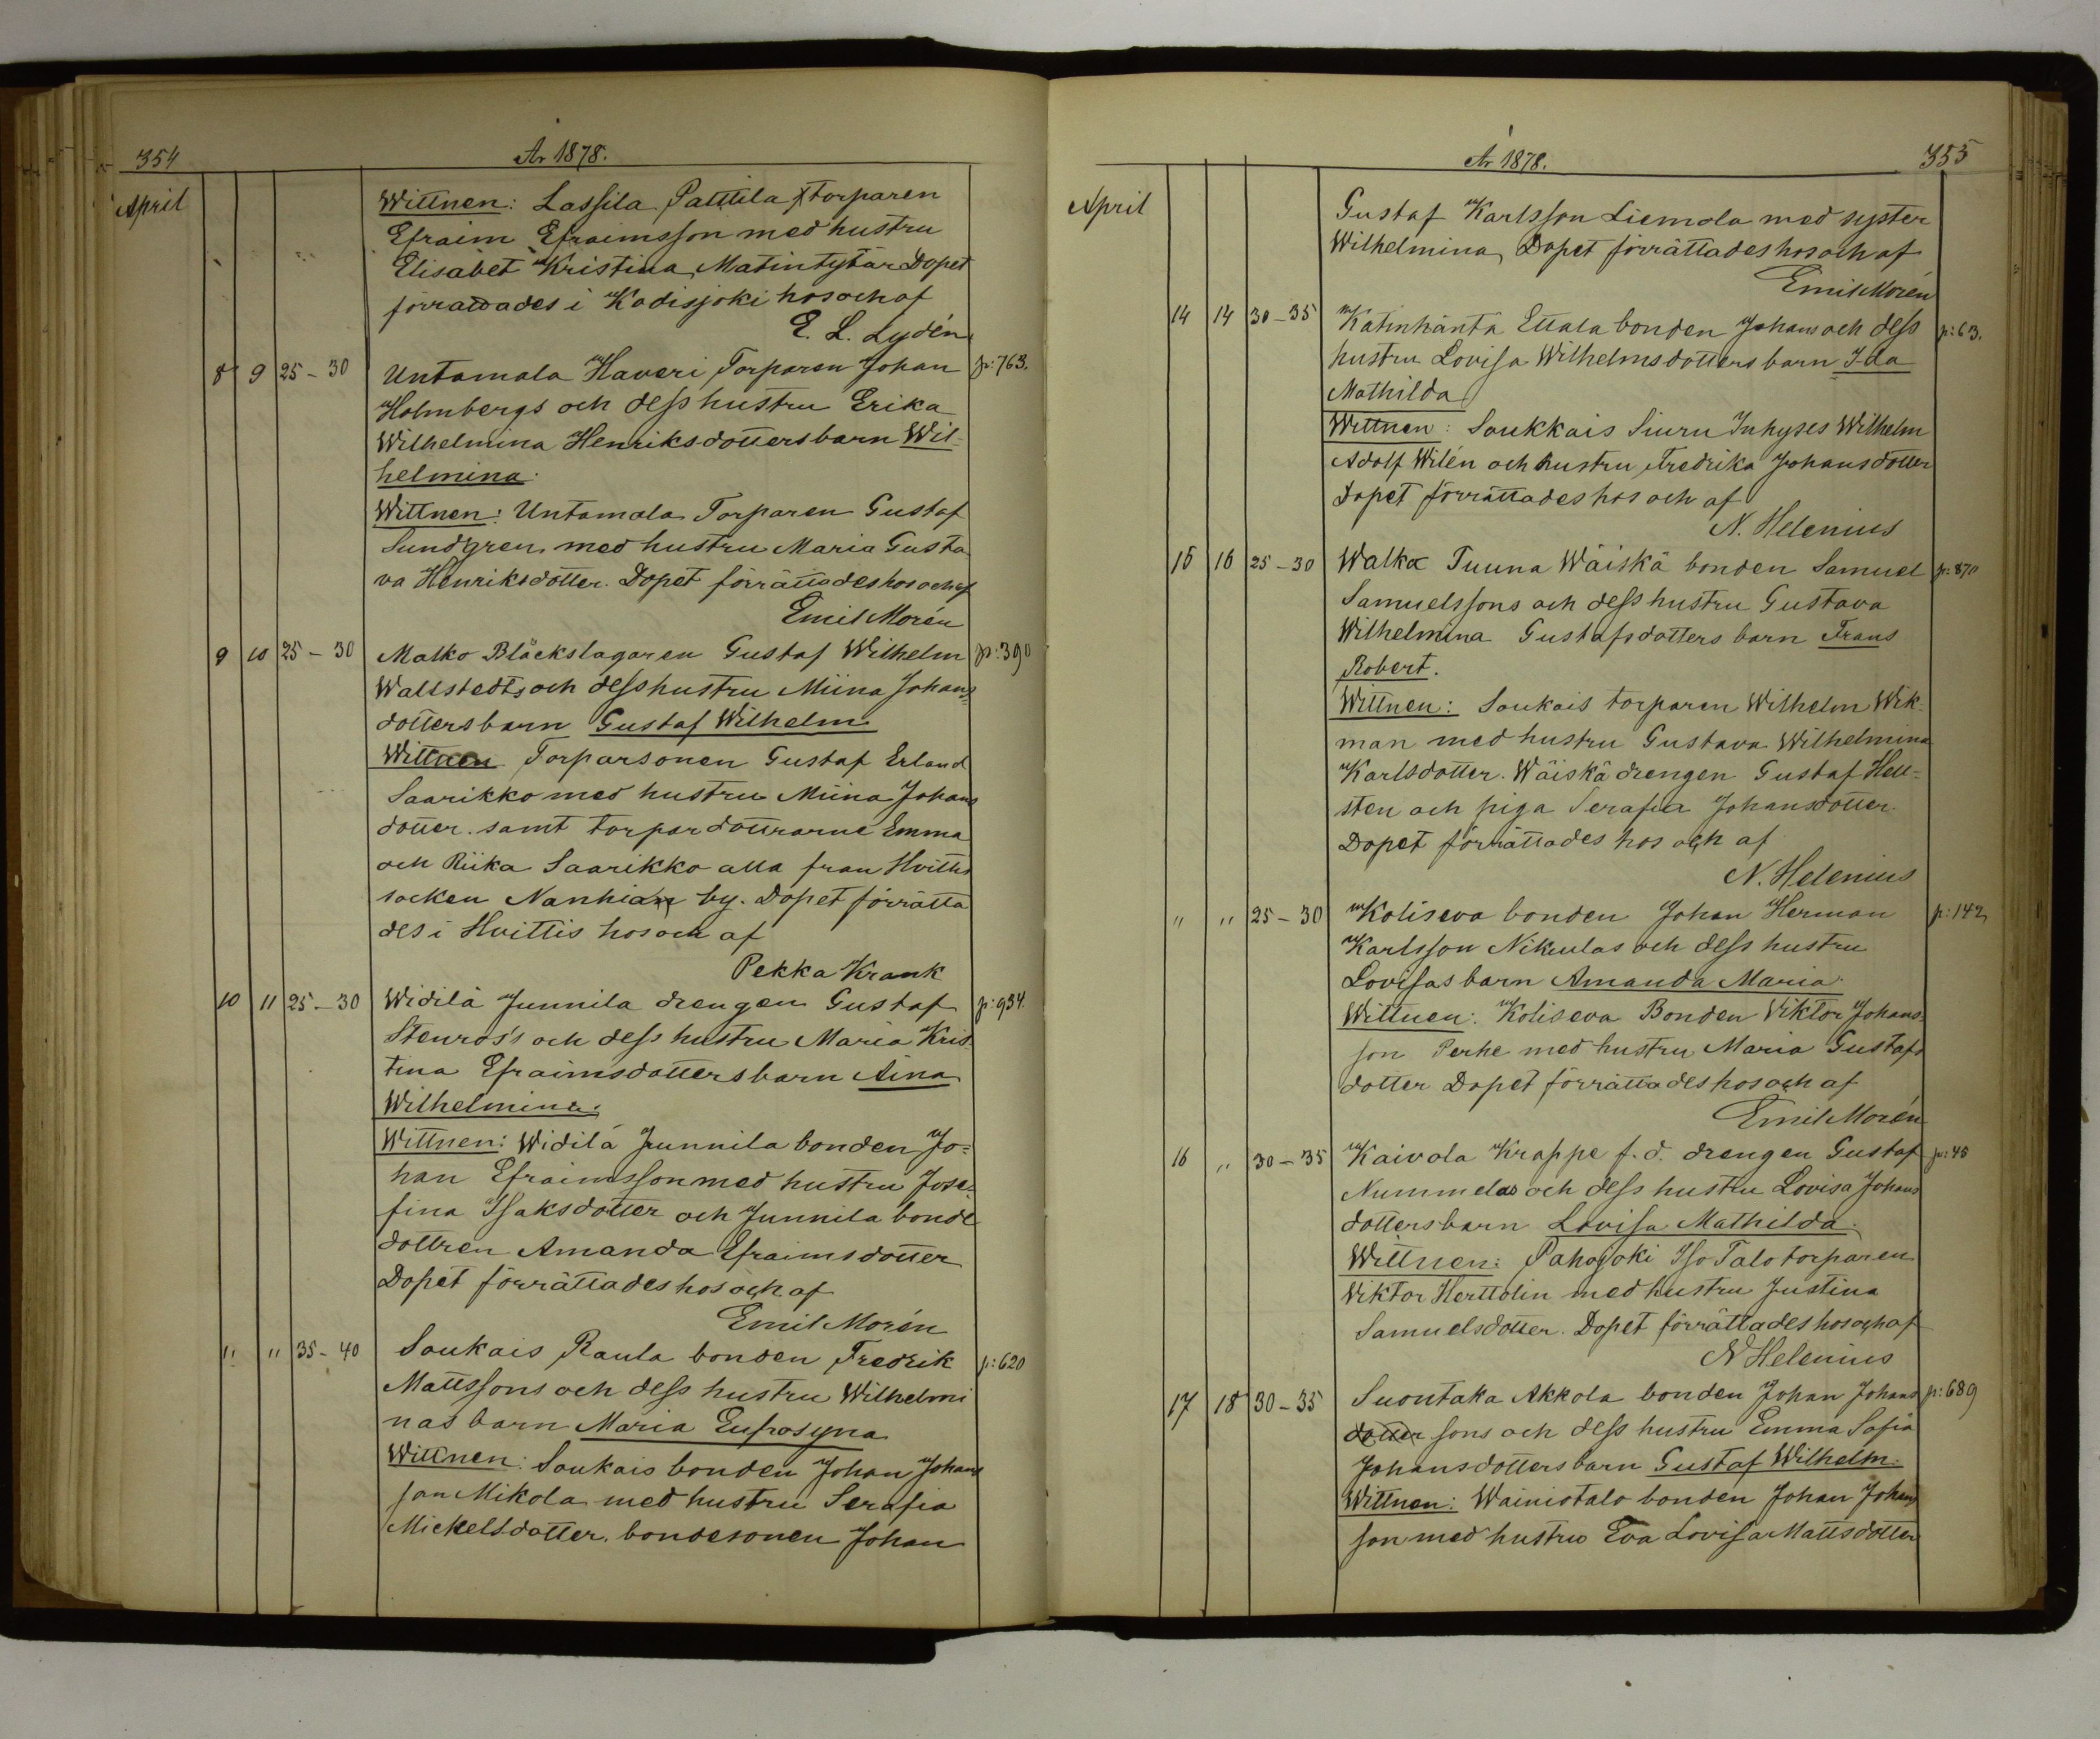 354
År 1878.
April
Wittnen: Lassila Pattila torparen
Efraim Efraimsson med hustru
Elisabet Kristina Matintytär Dopet
förrattades i Kodisjoki hos och af
E. L. Lydén
8 9 25-30 Untamala Haveri Torparen Johan p: 763.
Holmbergs och dess hustru Erika
Wilhelmina Henriksdotters barn Wil-
helmina.
Wittnen: Untamala Torparen Gustaf
Sundgren med hustru Maria Gusta
va Henriksdotter. Dopet förrättades hos och af
Emil Morén
9 10 25-30 Malko Bläckslagaren Gustaf Wilhelm p: 390
Wallstedts och dess hustru Miina Johans=
dotters barn Gustaf Wilhelm
Wittnen Torparsonen Gustaf Erland
Saarikko med hustru Miina Johans
dotter. samt torpar dottrarne Emma
och Riika Saarikko alla fran Hvittis
socken Nanhia by. Dopet förrätta
des i Hvittis hos och af
Pekka Krank
10 11 25-30 Widilä Junnila drengen Gustaf p: 934.
Stenros's och dess hustru Maria Kris=
tina Efraimsdotters barn Aina
Wilhelmina.
Wittnen: Widilä Junnila bonden Jo=
han Efraimsson med hustru Jose=
fina Isaksdotter och Junnila bonde
dottren Amanda Efraimsdotter
Dopet förrättades hos och af
Emil Morén
" " 35-40 Soukais Raula bonden Fredrik p: 620
Mattssons och dess hustru Wilhelmi
nas barn Maria Eufrosyna
Wittnen: Soukais bonden Johan Johans
son Mikola med hustru Serafia
Mickelsdotter. bondesonen Johan
År 1878.
355
April
Gustaf Karlsson Liemola med syster
Wilhelmina, Dopet förrättades hos och af
Emil Morén
14 14 30-35 Katinhäntä Ettala bonden Johans och dess p: 63.
hustru Lovisa Wilhelmsdotters barn Ida
Mathilda
Wittnen: Soukkais Siuru Inhyses Wilhelm
Adolf Wilén och hustru Fredrika Johansdotter
Dopet förrättades hos och af
N. Helenius
15 16 25-30 Walko Tuuna Wäiskä bonden Samuel p: 870
Samuelssons och dess hustru Gustava
Wilhelmina Gustafsdotters barn Frans
Robert.
Wittnen: Soukais torparen Wilhelm Wik-
man med hustru Gustava Wilhelmina
Karlsdotter. Wäiskä drengen Gustaf Hell=
sten och piga Serafia Johansdotter.
Dopet förrättades hos och af
N. Helenius
" " 25-30 Koliseva bonden Johan Herman p: 142
Karlsson Nikulas och dess hustru
Lovisas barn Amanda Maria.
Wittnen: Koliseva Bonden Viktor Johans=
son Perhe med hustru Maria Gustafs
dotter Dopet förrättades hos och af
Emil Morén
16 " 30-35 Kaivola Krappe f.d. drengen Gustaf p: 45
Nummelas och dess hustru Lovisa Johans
dotters barn Lovisa Mathilda.
Wittnen: Pahojoki Iso Talo torparen
Viktor Herttolin med hustru Justina
Samuelsdotter. Dopet förrättades hos och af
N Helenius
17 18 30-35 Suontaka Akkola bonden Johan Johans p: 689
dotter sons och dess hustru Emma Sofia
Johansdotters barn Gustaf Wilhelm.
Wittnen: Wainiotalo bonden Johan Johans
son med hustru Eva Lovisa Mattsdotter